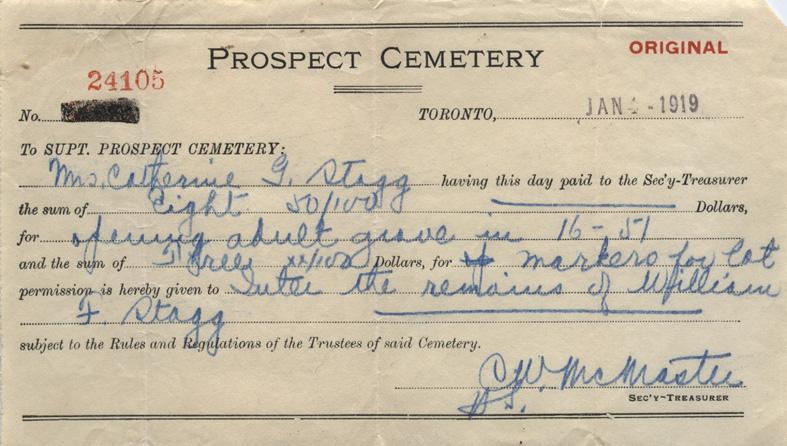 PROSPECT CEMETERY
ORIGINAL
24105
No.
TORONTO, JAN - 1919
To SUPT. PROSPECT CEMETERY:
Mrs. Catherine G. Stagg having this day paid to the Sec'y-Treasurer
the sum of Eight 50/100 Dollars,
for opening adult grave in 16-51
and the sum of Three xx/100 Dollars, for markers for lot
permission is hereby given to Inter the remains of William
F. Stagg
subject to the Rules and Regulations of the Trustees of said Cemetery.
C.W. McMaster
SEC'Y-TREASURER